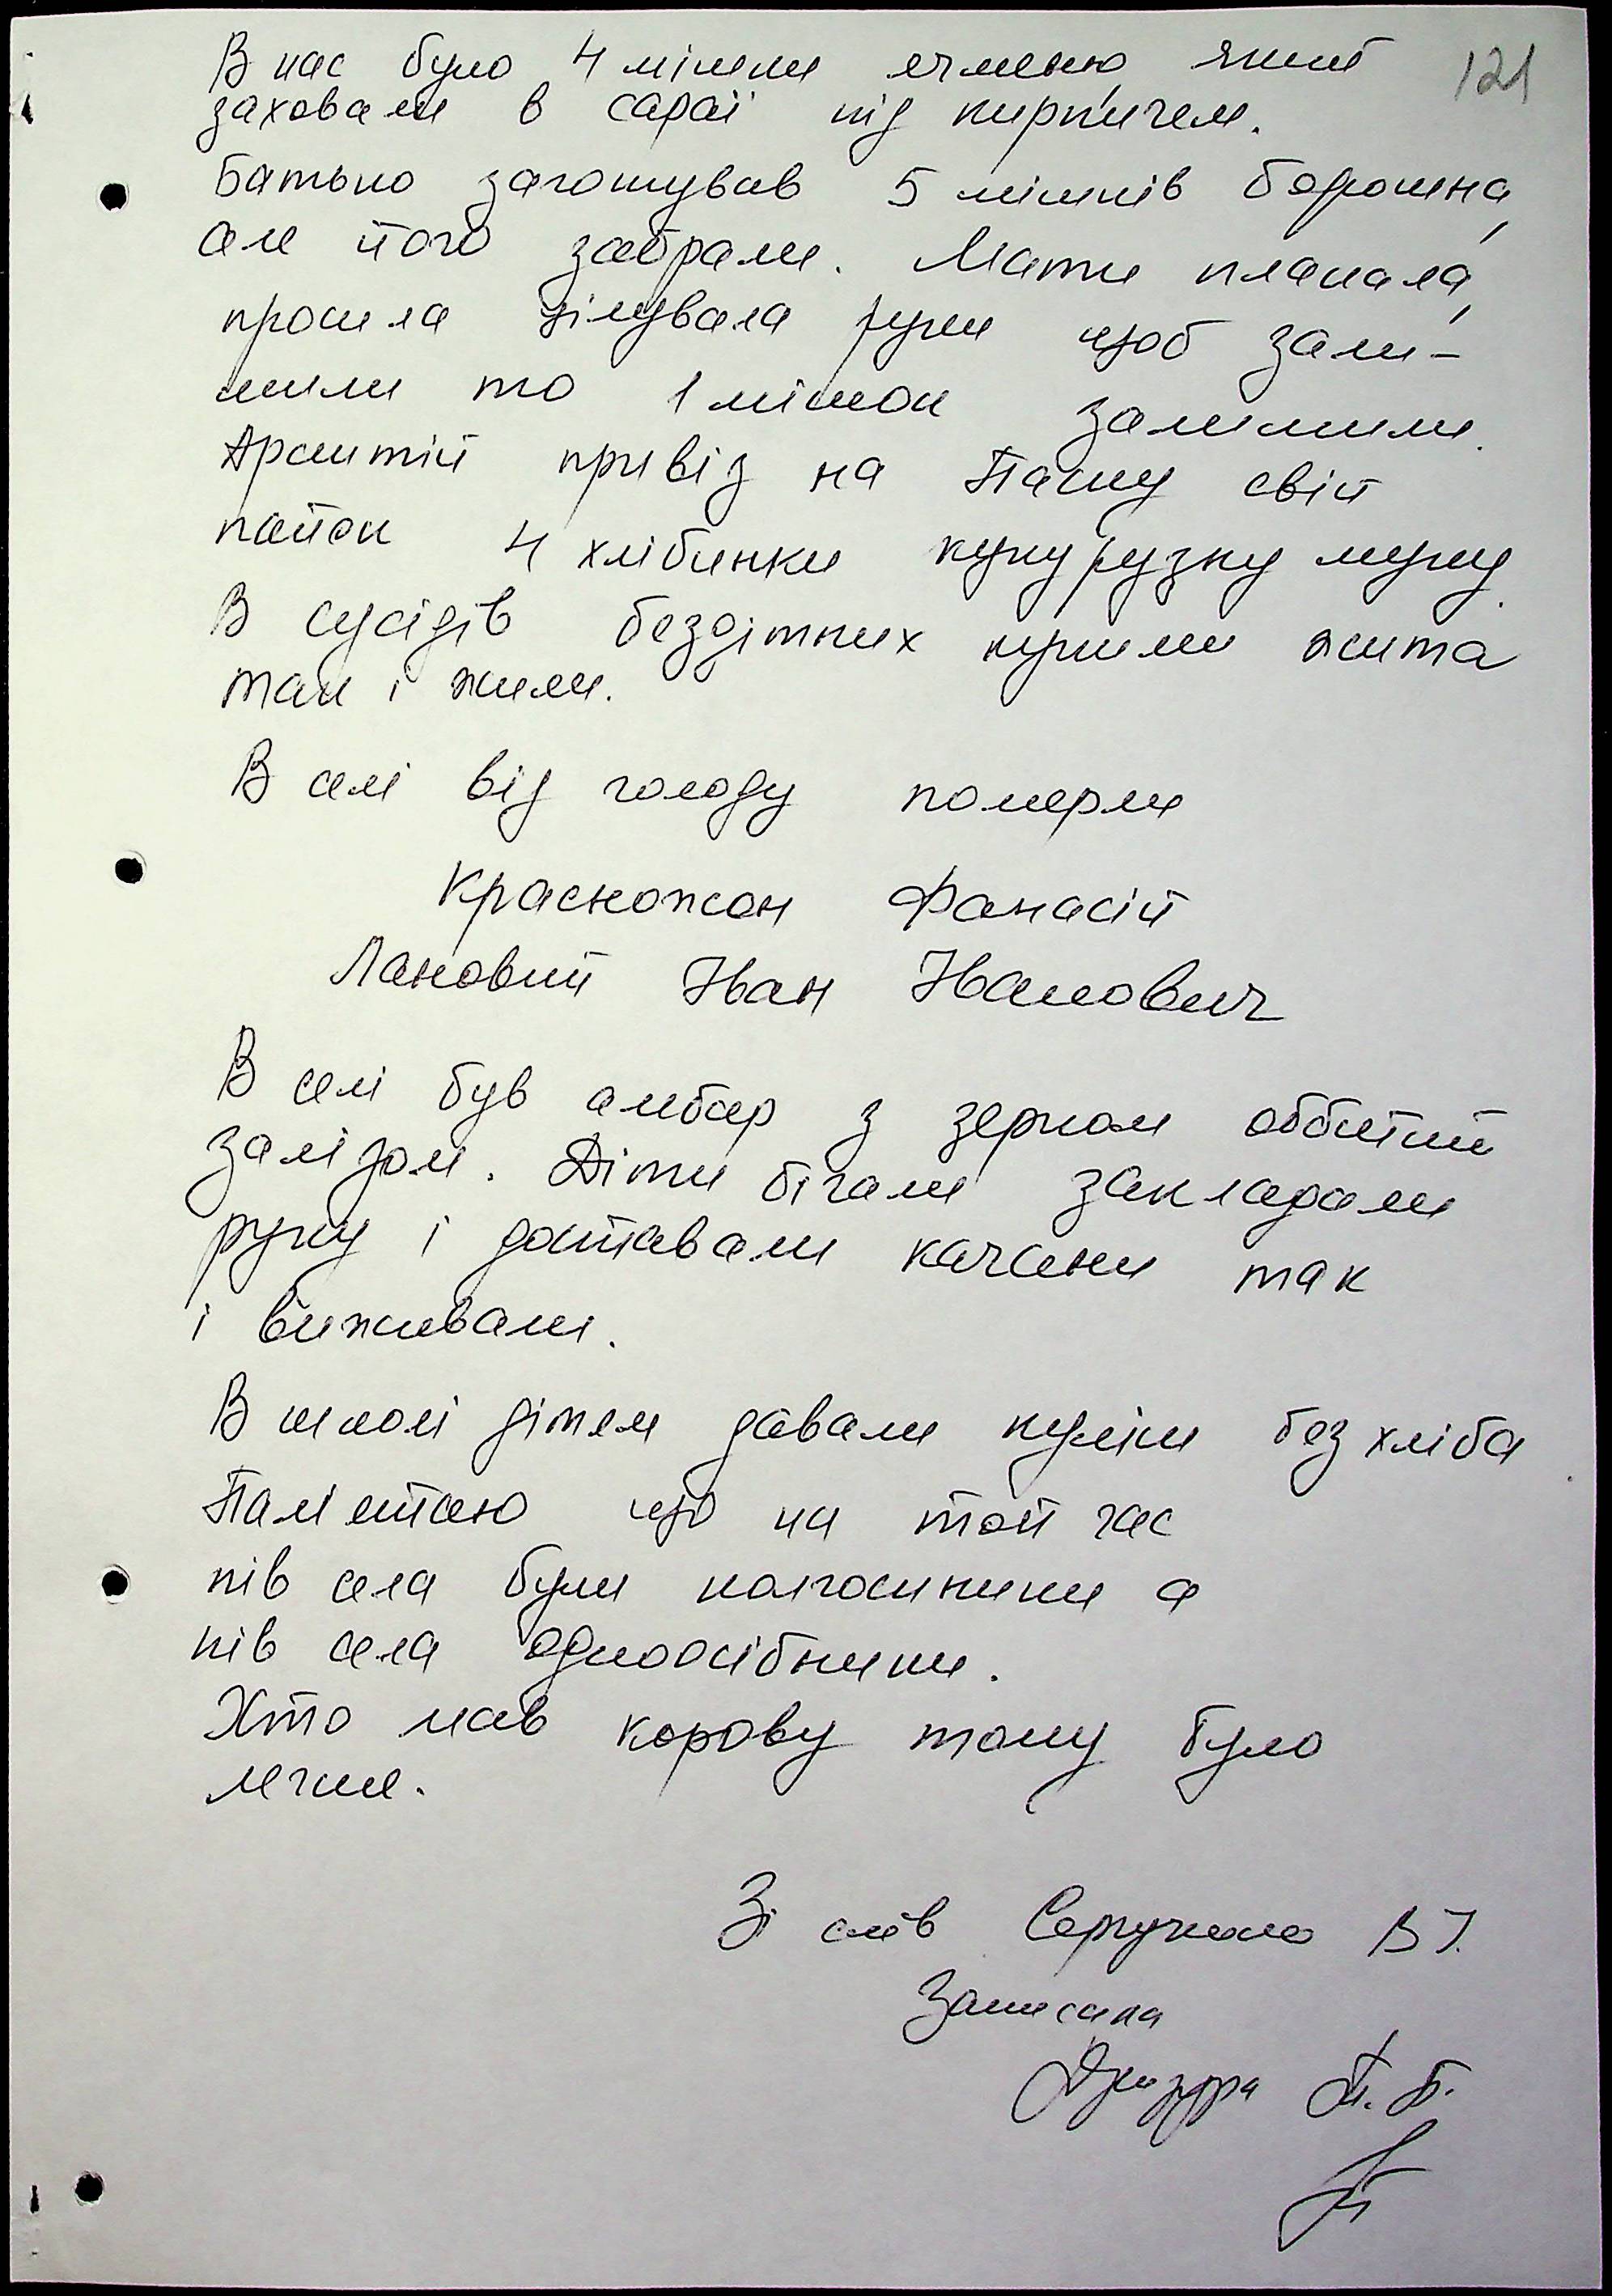 В нас було 4 мішки ячменю, який 121
заховали в сараї під кирпичем.
Батько заготував 5 мішків борошна,
але його забрали. Мати плакала,
просила цілувала руки щоб зали-
шили то 1 мішок залишили.
привіз на Паску свій
пайок 4 хлібинки кукурузну муку.
В сусідів бездітних купили жита
так і жили.
В селі від голоду померли
Красножон Фанасій
Лановий Іван Іванович
В селі був амбар з зерном оббитий
залізом. Діти бігали закладали
руку і доставали качани так
і виживали.
В школі дітям давали куліш без хліба
Пам'ятаю що на той час
пів села були колгоспники а
пів села одноосібники.
Хто мав корову тому було
легше.
Зі слів В І.
Записала
П. Б.